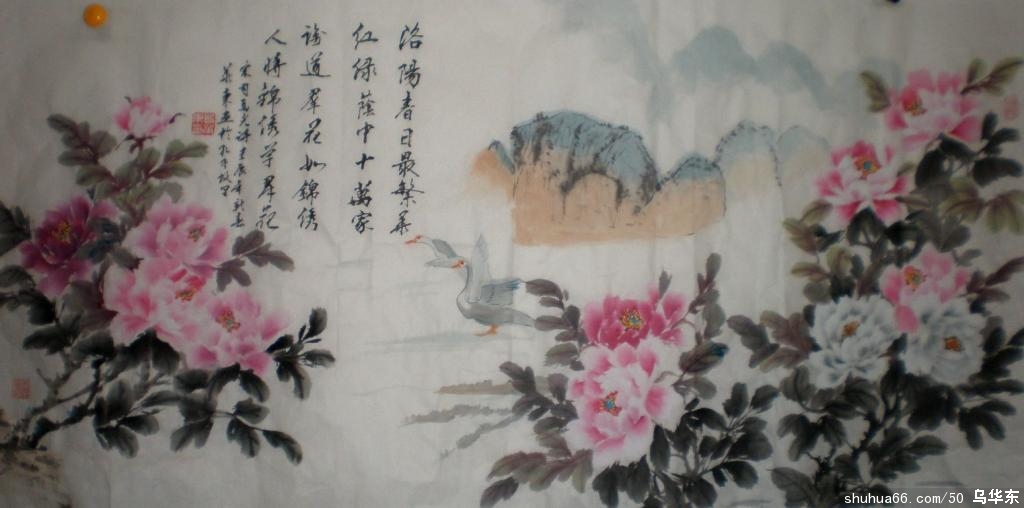 洛陽春日最繁華
红绿蔭中十萬家
誰道羣花如錦绣
人將錦绣学羣花
宋司馬光诗
shuhua66.com/50 乌华东